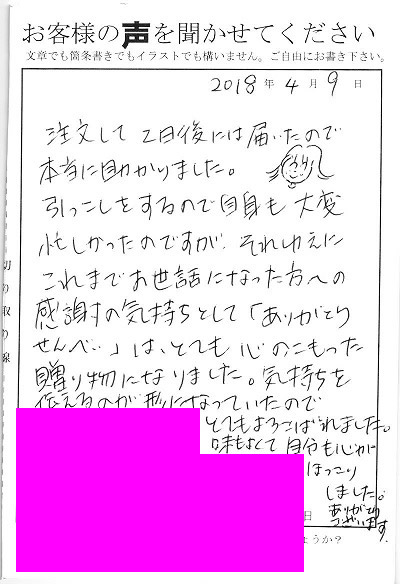 お客様の声を聞かせてください
文章でも箇条書きでもイラストでも構いません。ご自由にお書き下さい。
2018年4月9日
注文して2日後には届いたので
本当に助かりました。
引っこしをするので自身も大変
忙しかったのですが、それゆえに
これまでお世話になった方への
感謝の気持ちとして「ありがとう
せんべい」は、とても心のこもった
贈り物になりました。気持ちを
伝えるのが形になっていたので
とてもよろこばれました。
味もよくて自分も心が
ほっこり
しました。
ありがとう
ございます
日
ようか?
切り取り線